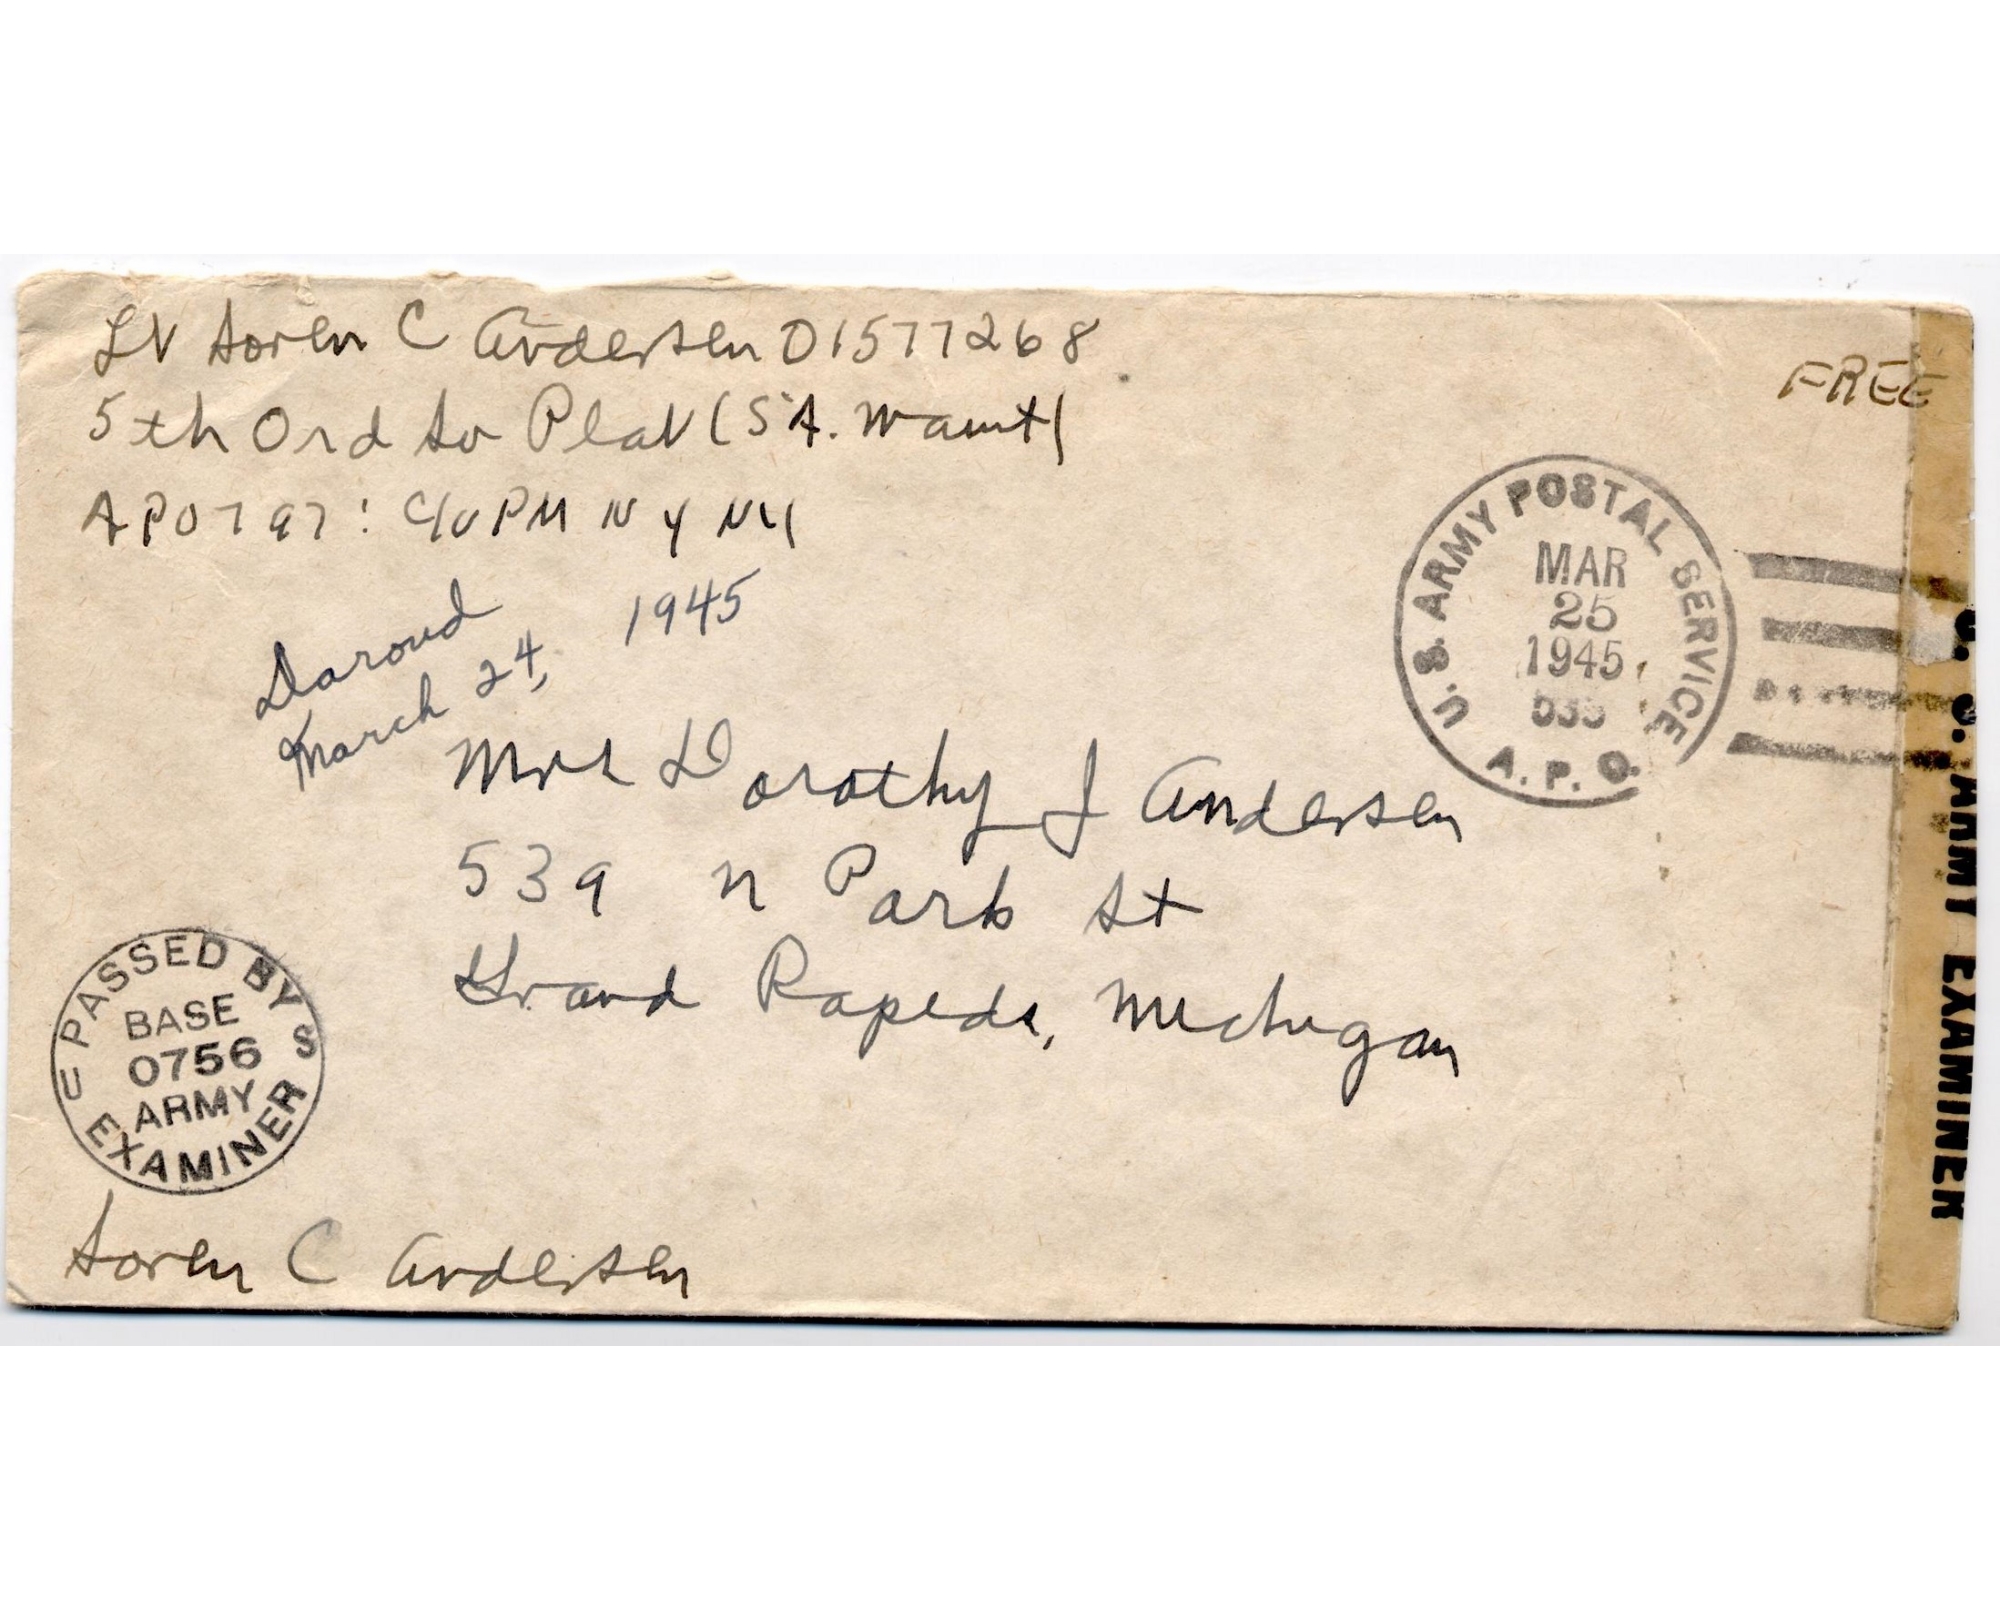 Lt Soren C Andersen O1577268
5th Ord Sv Plat (S A. Maint)
APO 797: c/o PM N Y NY
FREE
Daroud
March 24, 1945
U.S. ARMY POSTAL SERVICE
MAR
25
1945
A.P.O.
Mrs Dorothy J Andersen
539 N Park St
Grand Rapids, Michigan
PASSED BY
BASE
0756
ARMY
U S
EXAMINER
Soren C Andersen
U. S. ARMY EXAMINER